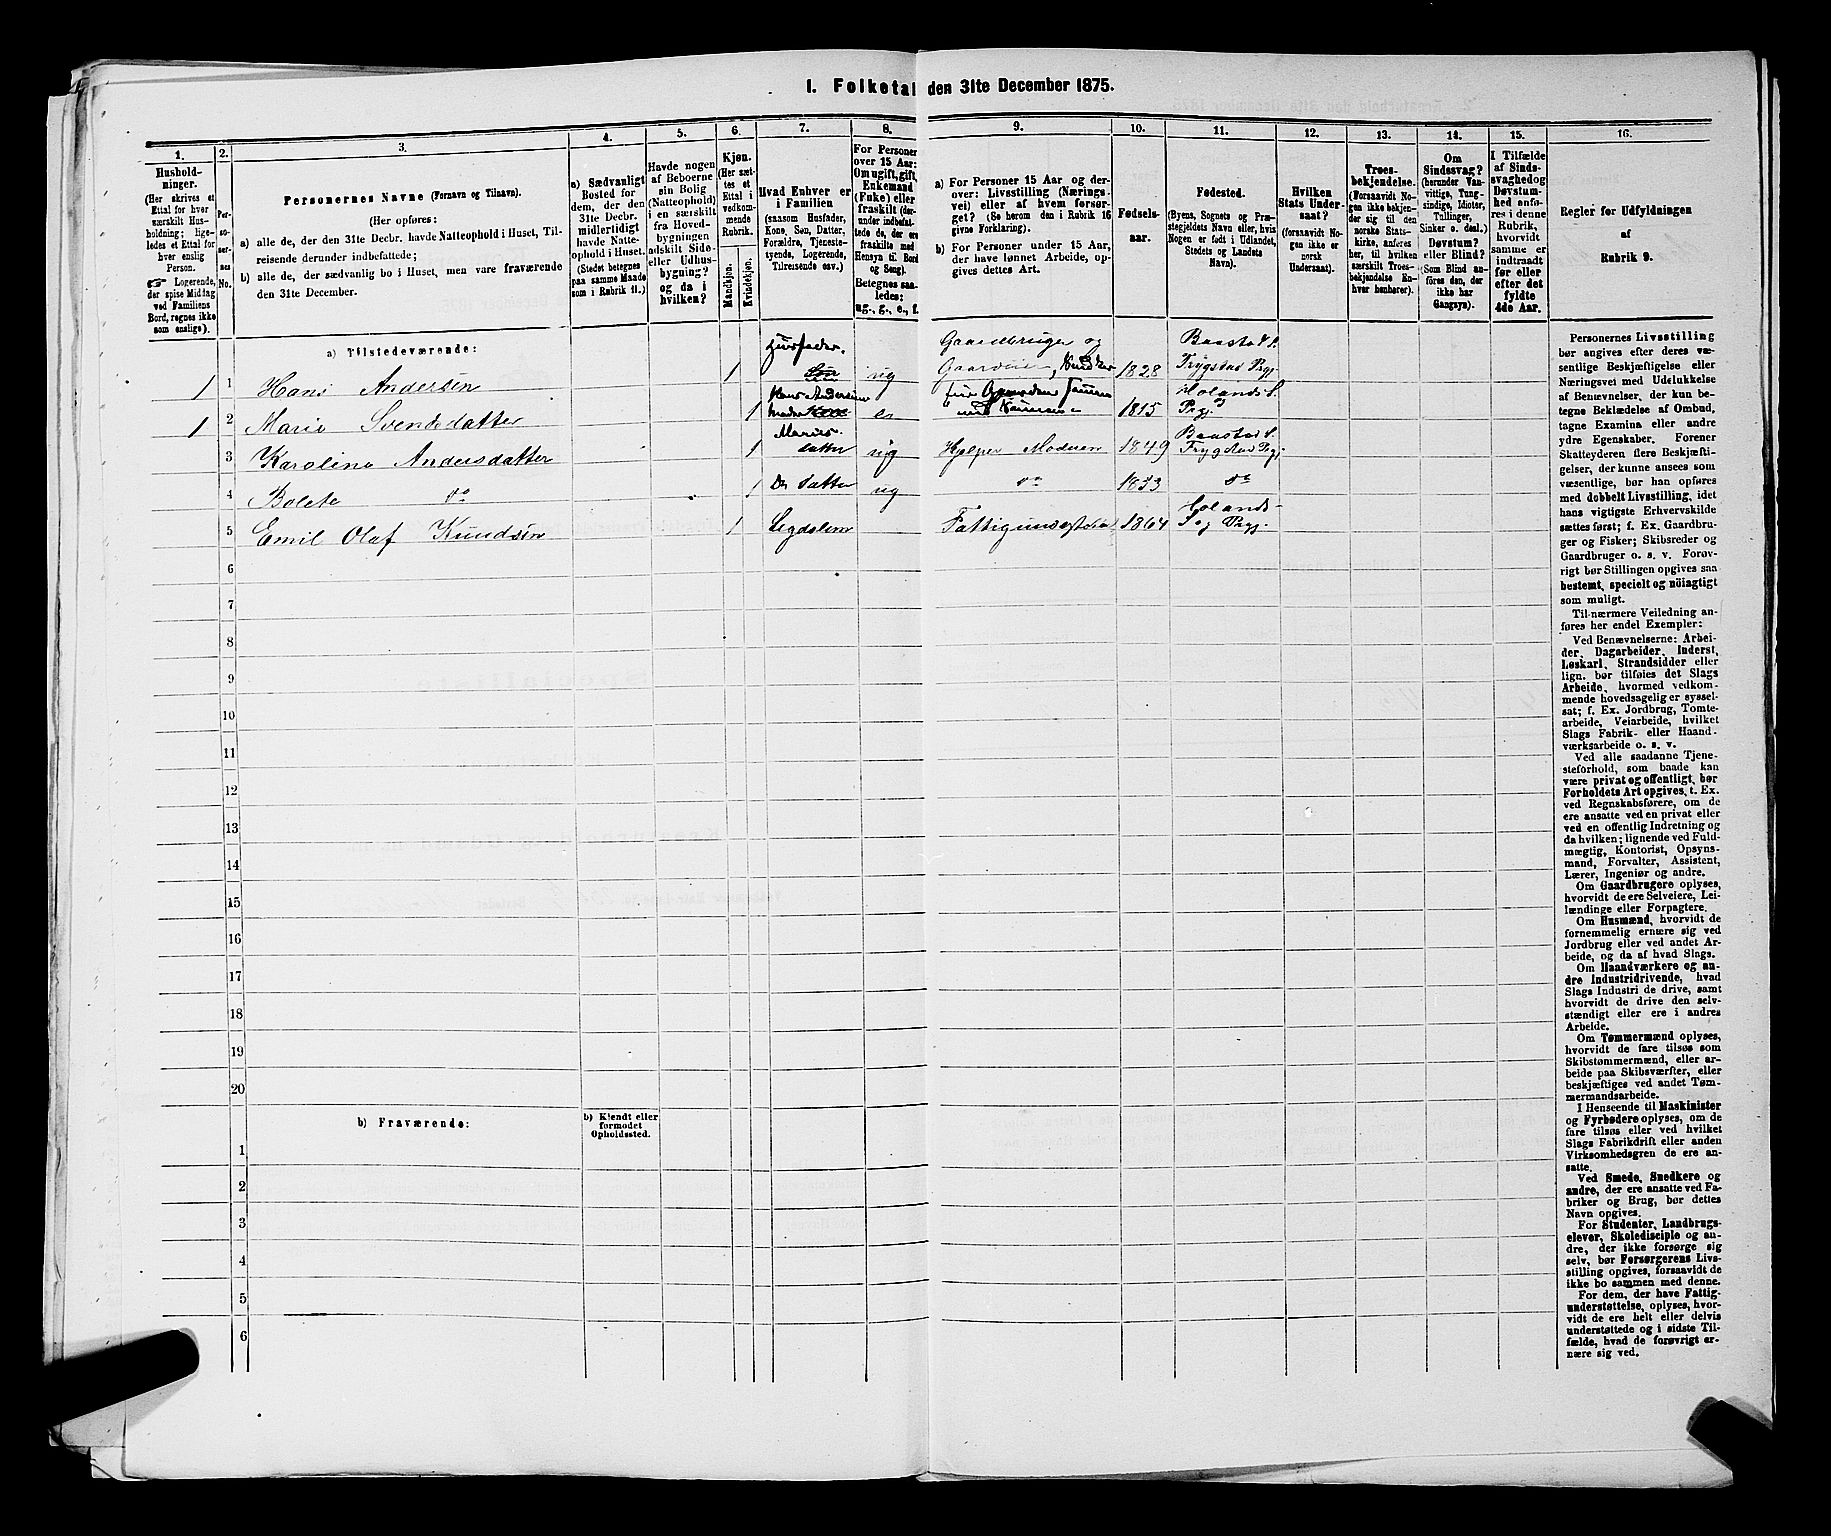 I. Folketal den 31te December 1875.
1. 2. 3. 4. 5. 6. 7. 8. 9. 10. 11. 12. 13. 14. 15. 16.
Hushold-
ninger.
(Her skrives et
Ettal for hver
særskilt Hus-
holdning; lige-
ledes et Ettal for
hver enslig
Person.
☞ Logerende,
der spise Middag
ved Familiens
Bord, regnes ikke
som enslige).
Per-
so-
ner-
nes
No.
Personernes Navne (Fornavn og Tilnavn).
(Her opføres:
a) alle de, der den 31te Decbr. havde Natteophold i Huset, Til-
reisende derunder indbefattede;
b) alle de, der sædvanlig bo i Huset, men vare fraværende
den 31te December.
a) Sædvanligt
Bosted for
dem, der den
31te Decbr.
midlertidigt
havde Natte-
ophold i Huset.
(Stedet betegnes
paa samme Maade
som i Rubrik 11.)
Havde nogen
af Beboerne
sin Bolig
(Natteophold)
i en særskilt
fra Hoved-
bygningen
adskilt Side-
eller Udhus-
bygning?
og da i
hvilken?
Kjøn.
(Her sæt-
tes et
Ettal i
vedkom-
mende
Rubrik.
Mandkjøn.
Kvindekjøn.
Hvad Enhver er
i Familien
(saasom Husfader,
Kone, Søn, Datter,
Forældre, Tjeneste-
tyende, Logerende,
Tilreisende osv.)
For Personer
over 15 Aar:
Om ugift, gift,
Enkemand
(Fuke) eller
fraskilt (der-
under indbefat-
tede de, der ere
fraskilte med
Hensyn til Bord
og Seng).
Betegnes saa-
ledes:
ug., g., e., f.
a) For Personer 15 Aar og der-
over: Livsstilling (Nærings-
vei) eller af hvem forsør-
get? (Se herom den i Rubrik 16
givne Forklaring).
b) For Personer under 15 Aar,
der have lønnet Arbeide, op-
gives dettes Art.
Fødsels-
aar.
Fødested.
(Byens, Sognets og Præ-
stegjeldets Navn eller, hvis
Nogen er født i Udlandet,
Stedets og Landets
Navn).
Hvilken
Stats Under-
saat?
(forsaavidt No-
gen ikke er
norsk
Undersaat).
Troes-
bekjendelse.
(Forsaavidt No-
gen ikke bekjen-
der sig til den
norske Stats-
kirke, anføres
her, til hvilken
særskilt Troes-
bekjendelse En-
hver henhører).
Om
Sindssvag?
(herunder Van-
vittige, Tung-
sindige, Idioter,
Tullinger,
Sinker o. desl.)
Døvstum?
eller Blind?
(Som Blind an-
føres den, der
ikke har
Gangsyn).
I Tilfælde
af Sinds-
svaghed og
Døvstum-
hed anfø-
res i denne
Rubrik,
hvorvidt
samme er
indtraadt
før eller
efter det
fyldte
4de Aar.
Regler for Udfyldningen
af
Rubrik 9.
a) Tilstedeværende:
1 1 Hans Andersen 1 Husfader. ug Gaardbruger og Gaardeier, 1828 Baastad S. Trygstad Prgj.
1 2 Marie Svendsdatter 1 Hans Andersens Moder e 1815 Holands S. og Prgj.
3 Karoline Andersdatter 1 Maries datter ug Hjelper Moderen 1849 Baastad S. Trygstad Prgj.
4 Bolete do 1 Do datter ug do 1853 do
5 Emil Olaf Knudsen 1 Legdslem 1864 Holands S. og Prgj.
6
7
8
9
10
11
12
13
14
15
16
17
18
19
20
b) Fraværende:
b) Kjendt eller
formodet
Opholdssted.
1
2
3
4
5
6
Personernes Livsstilling
bør angives efter deres væ-
sentlige Beskjæftigelse eller
Næringsvei med Udelukkelse
af Benævnelser, der kun be-
tegne Beklædelse af Ombud,
tagne Examina eller andre
ydre Egenskaber. Forener
Skatteyderen flere Beskjæfti-
gelser, der kunne ansees som
væsentlige, bør han opføres
med dobbelt Livsstilling, idet
hans vigtigste Erhvervskilde
sættes først; f. Ex. Gaardbru-
ger og Fisker; Skibsreder og
Gaardbruger o. s. v. Forøv-
rigt bør Stillingen opgives saa
bestemt, specielt og nöiagtigt
som muligt.
Til nærmere Veiledning an-
føres her endel Exempler:
Ved Benævnelserne: Arbei-
der, Dagarbeider, Inderst,
Løskarl, Strandsidder eller
lign. bør tilføies det Slags
Arbeide, hvormed vedkom-
mende hovedsagelig er syssel-
sat; f. Ex. Jordbrug, Tomte-
arbeide, Veiarbeide, hvilket
Slags Fabrik- eller Haand-
værksarbeide o. s. v.
Ved alle saadanne Tjene-
steforhold, som baade kan
være privat og offentligt, bør
Forholdets Art opgives, t. Ex.
ved Regnskabsførere, om de
ere ansatte ved en privat eller
ved en offentlig Indretning og
da hvilken; lignende ved Fuld-
mægtig, Kontorist, Opsyns-
mand, Forvalter, Assistent,
Lærer, Ingeniør og andre.
Om Gaardbrugere oplyses,
hvorvidt de ere Selveiere, Lei-
lændinge eller Forpagtere.
Om Husmænd, hvorvidt de
fornemmelig ernære sig ved
Jordbrug eller ved andet Ar-
beide, og da af hvad Slags.
Om Haandværkere og an-
dre Industridrivende, hvad
Slags Industri de drive, samt
hvorvidt de drive den selv-
stændigt eller ere i andres
Arbeide.
Om Tømmermænd oplyses,
hvorvidt de fare tilsøs som
Skibstømmermænd, eller ar-
beide paa Skibsværfter, eller
beskjæftiges ved andet Tøm-
mermandsarbeide.
I Henseende til Maskinister
og Fyrbødere oplyses, om de
fare tilsøs eller ved hvilket
Slags Fabrikdrift eller anden
Virksomhedsgren de ere an-
satte.
Ved Smede, Snedkere og
andre, der ere ansatte ved Fa-
briker og Brug, bør dettes
Navn opgives.
For Studenter, Landbrugs-
elever, Skoledisciple og an-
dre, der ikke forsørge sig
selv, bør Forsørgerens Livs-
stilling opgives, forsaavidt de
ikke bo sammen med denne.
For dem, der have Fattig-
understøttelse, oplyses, hvor-
vidt de ere helt eller delvis
understøttede og i sidste Til-
fælde, hvad de forøvrigt er-
nære sig ved.